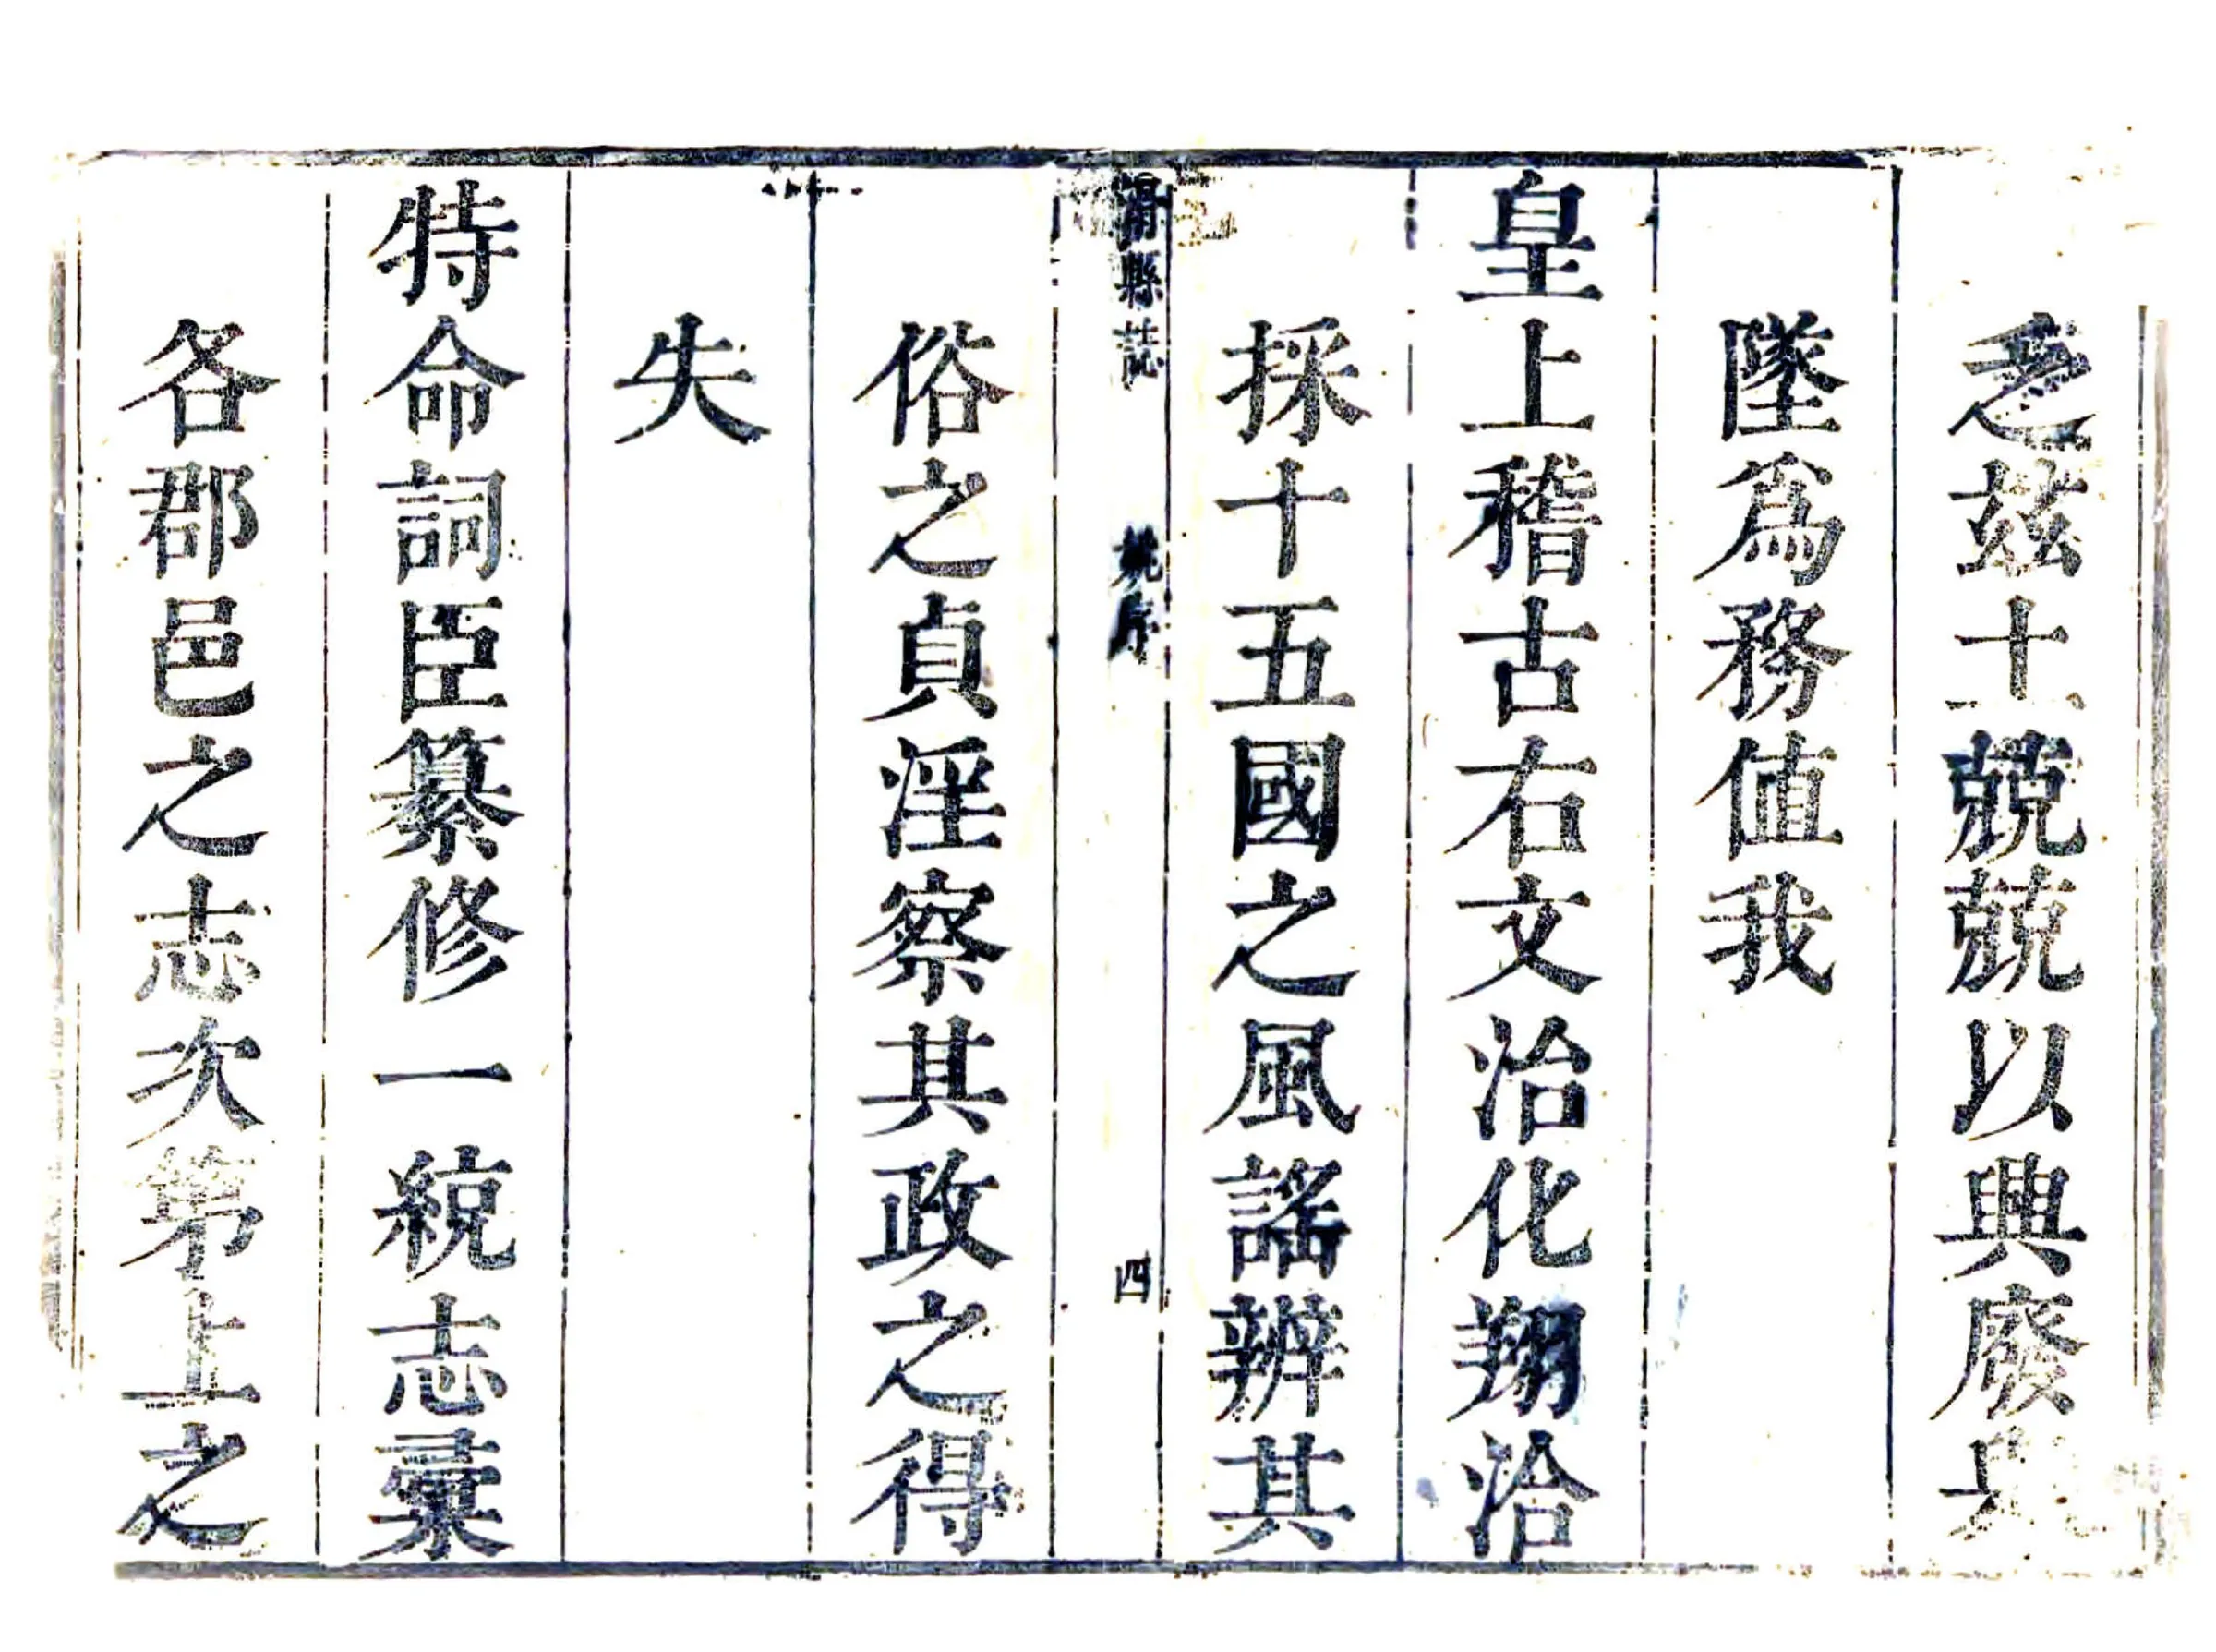 之茲土兢兢以興廢
墜爲務値我
皇上稽古右文治化翔洽
採十五國之風謠辨其
滑縣誌 姚序 四
俗之貞淫察其政之得
失
特命詞臣纂修一統志彙
各郡邑之志次第上之